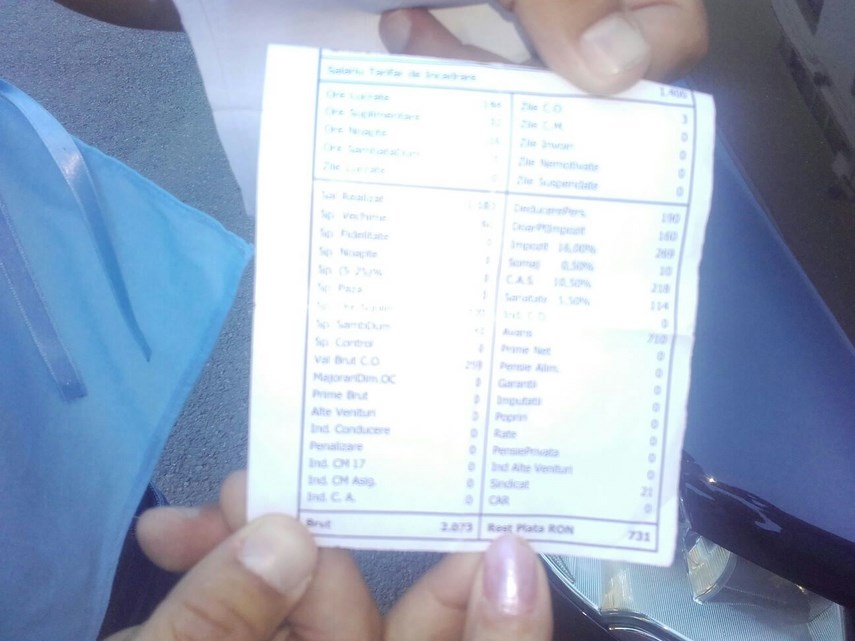 Salariu Tarifar de Incadrare 1.406
Ore Lucrate 144
Ore Suplimentare
Ore Noapte
Ore SambataDum
Zile Lucrate
Zile C.O. 3
Zile C.M. 0
Zile Invoiri 0
Zile Nemotivate 0
Zile Suspendate 0
Sal Realizat
Sp. Vechime
Sp. Fidelitate 0
Sp. Noapte
Sp. (5-25)%
Sp. Paza
Sp.
Sp. SambDum
Sp. Control 0
Val Brut C.O 259
MajorariDim.OC 0
Prime Brut 0
Alte Venituri 0
Ind. Conducere 0
Penalizare 0
Ind. CM 17 0
Ind. CM Asig. 0
Ind. C. A. 0
DeducerePers. 190
160
Impozit 16,00% 269
Somaj 0,50% 10
C.A.S. 10,50% 218
Sanatate 5,50% 114
Ind. C.O. 0
Avans 710
Prime Net 0
Pensie Alim. 0
Garantii 0
Imputatii 0
Popriri 0
Rate 0
PensiePrivata 0
Ind Alte Venituri 0
Sindicat 21
CAR 0
Brut 2.073
Rest Plata RON 731